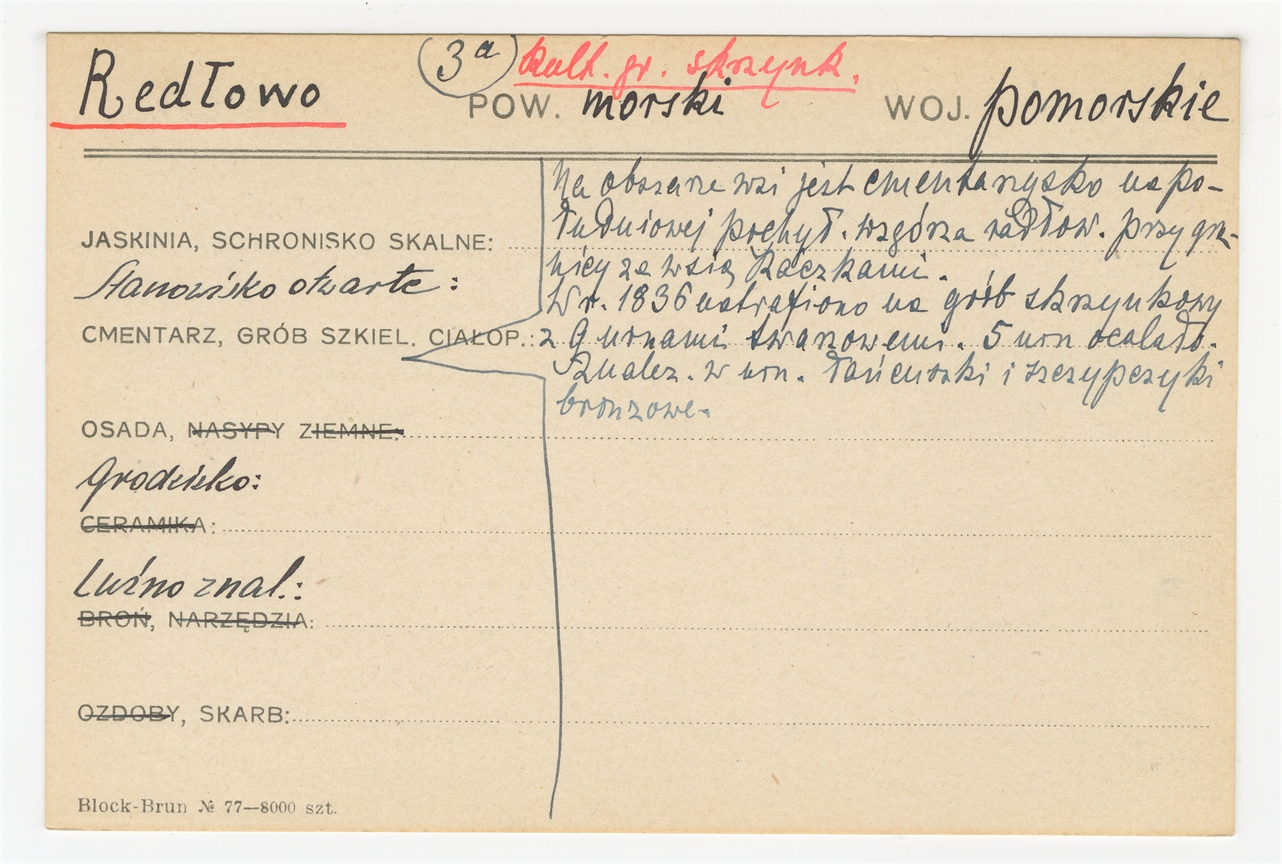 3a kult. gr. skrzynk.
Redłowo POW. morski WOJ. pomorskie
Na obszarze wsi jest cmentarzysko na po-
łudniowej pochył. wzgórza radłow. przy gra-
JASKINIA, SCHRONISKO SKALNE:
nicy ze wsią Kaczkami.
Stanowisko otwarte:
W r. 1836 natrafiono na grób skrzynkowy
CMENTARZ, GRÓB SZKIEL. CIAŁOP.: z 9 urnami twarzowemi. 5 urn ocalało.
Znalez. w urn. łańcuszki i szczypczyki
bronzowe.
OSADA, NASYPY ZIEMNE:
Grodzisko:
CERAMIKA:
Luźno znal.:
BROŃ, NARZĘDZIA:
OZDOBY, SKARB:
Block-Brun № 77—8000 szt.